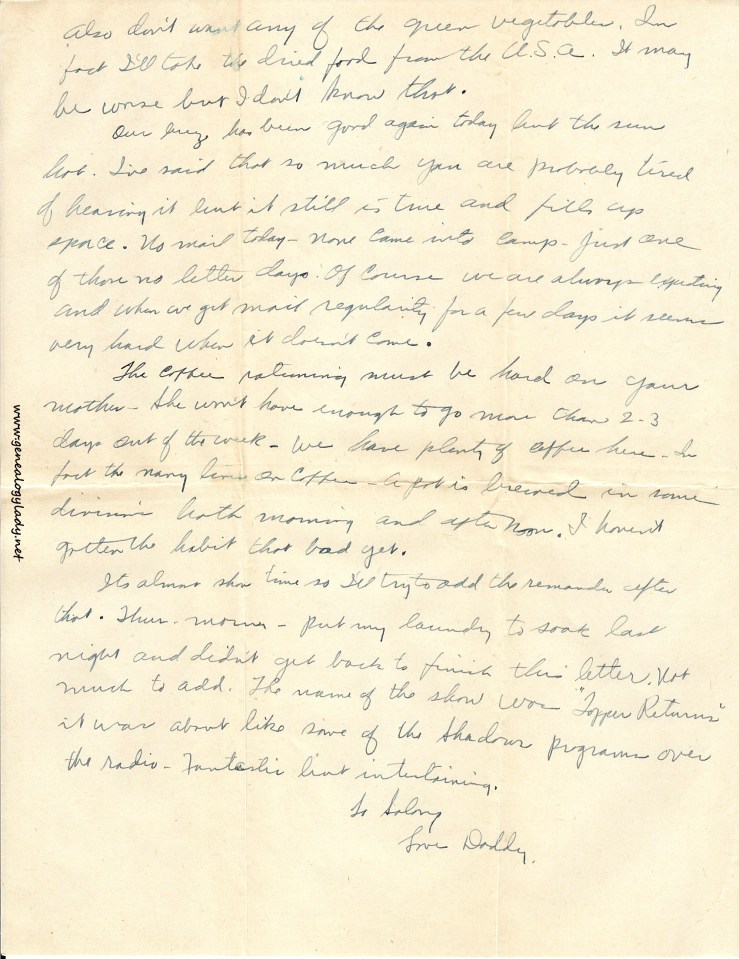 also don't want any of the green vegetables. In
fact I'll take the dried food from the U.S.A. It may
be worse but I don't know that.
Our breeze has been good again today but the sun
hot. I've said that so much you are probably tired
of hearing it but it still is true and fills up
space. No mail today - none came into camp - Just one
of those no letter days. Of course we are always expecting
and when we get mail regularity for a few days it seems
very hard when it doesn't come.
The coffee rationing must be hard on your
mother - She won't have enough to go more than 2-3
days out of the week - We have plenty of coffee here - In
fact the navy lives on Coffee - A pot is brewed in some
divisions both morning and afternoon. I haven't
gotten the habit that bad yet.
Its almost show time so I'll try to add the remainder after
that. Thur. morning - put my laundry to soak last
night and didn't get back to finish this letter. Not
much to add. The name of the show was "Topper Returns"
it was about like some of the Shadow programs over
the radio - Fantastic but intertaining.
So Solong
Love Daddy.
www.genealogylady.net